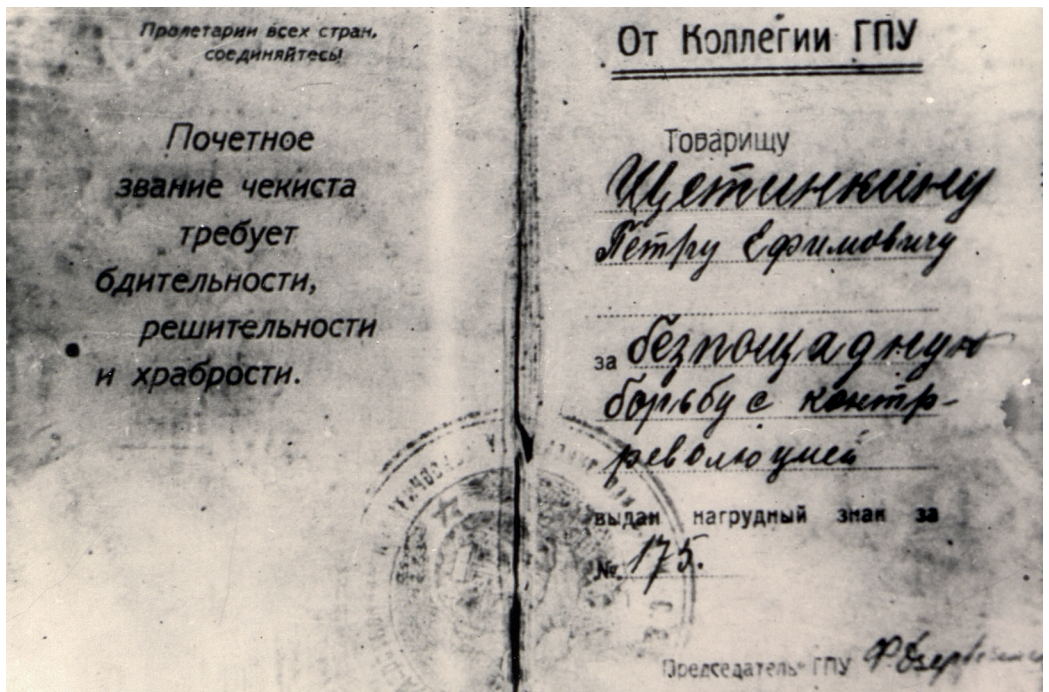 Пролетарии всех стран,
соединяйтесь!
Почетное
звание чекиста
требует
бдительности,
решительности
и храбрости.
От Коллегии ГПУ
Товарищу
Щетинкину
Петру Ефимовичу
за безпощадную
борьбу с контр-
революцией
выдан нагрудный знак за
№ 175.
Председатель ГПУ Ф Дзержинский